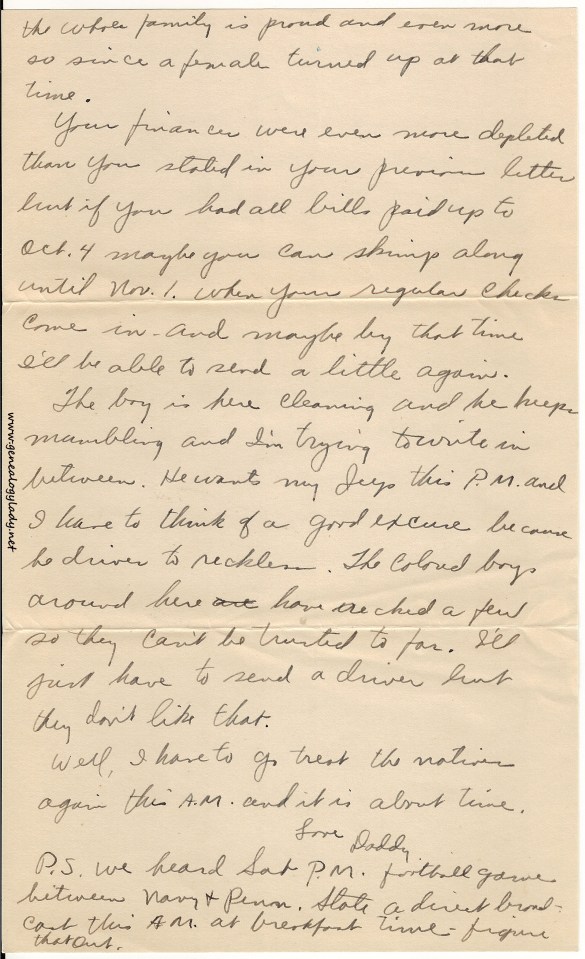 the whole family is proud and even more
so since a female turned up at that
time.
Your finances were even more depleted
than you stated in your previous letter
but if you had all bills paid up to
Oct. 4 maybe you can skimp along
until Nov. 1. when your regular checks
come in - and maybe by that time
I'll be able to send a little again.
The boy is here cleaning and he keeps
mumbling and I'm trying to write in
between. He wants my Jeep this P.M. and
I have to think of a good excuse because
he drives to reckless. The colored boys
around here are have wrecked a few
so they can't be trusted to far. I'll
just have to send a driver but
they don't like that.
Well, I have to go treat the natives
again this A.M. and it is about time.
Love Daddy
P.S. We heard Sat P.M. football game
between Navy & Penn. State a direct broad-
cast this A.M. at breakfast time - figure
that out.
www.genealogylady.net